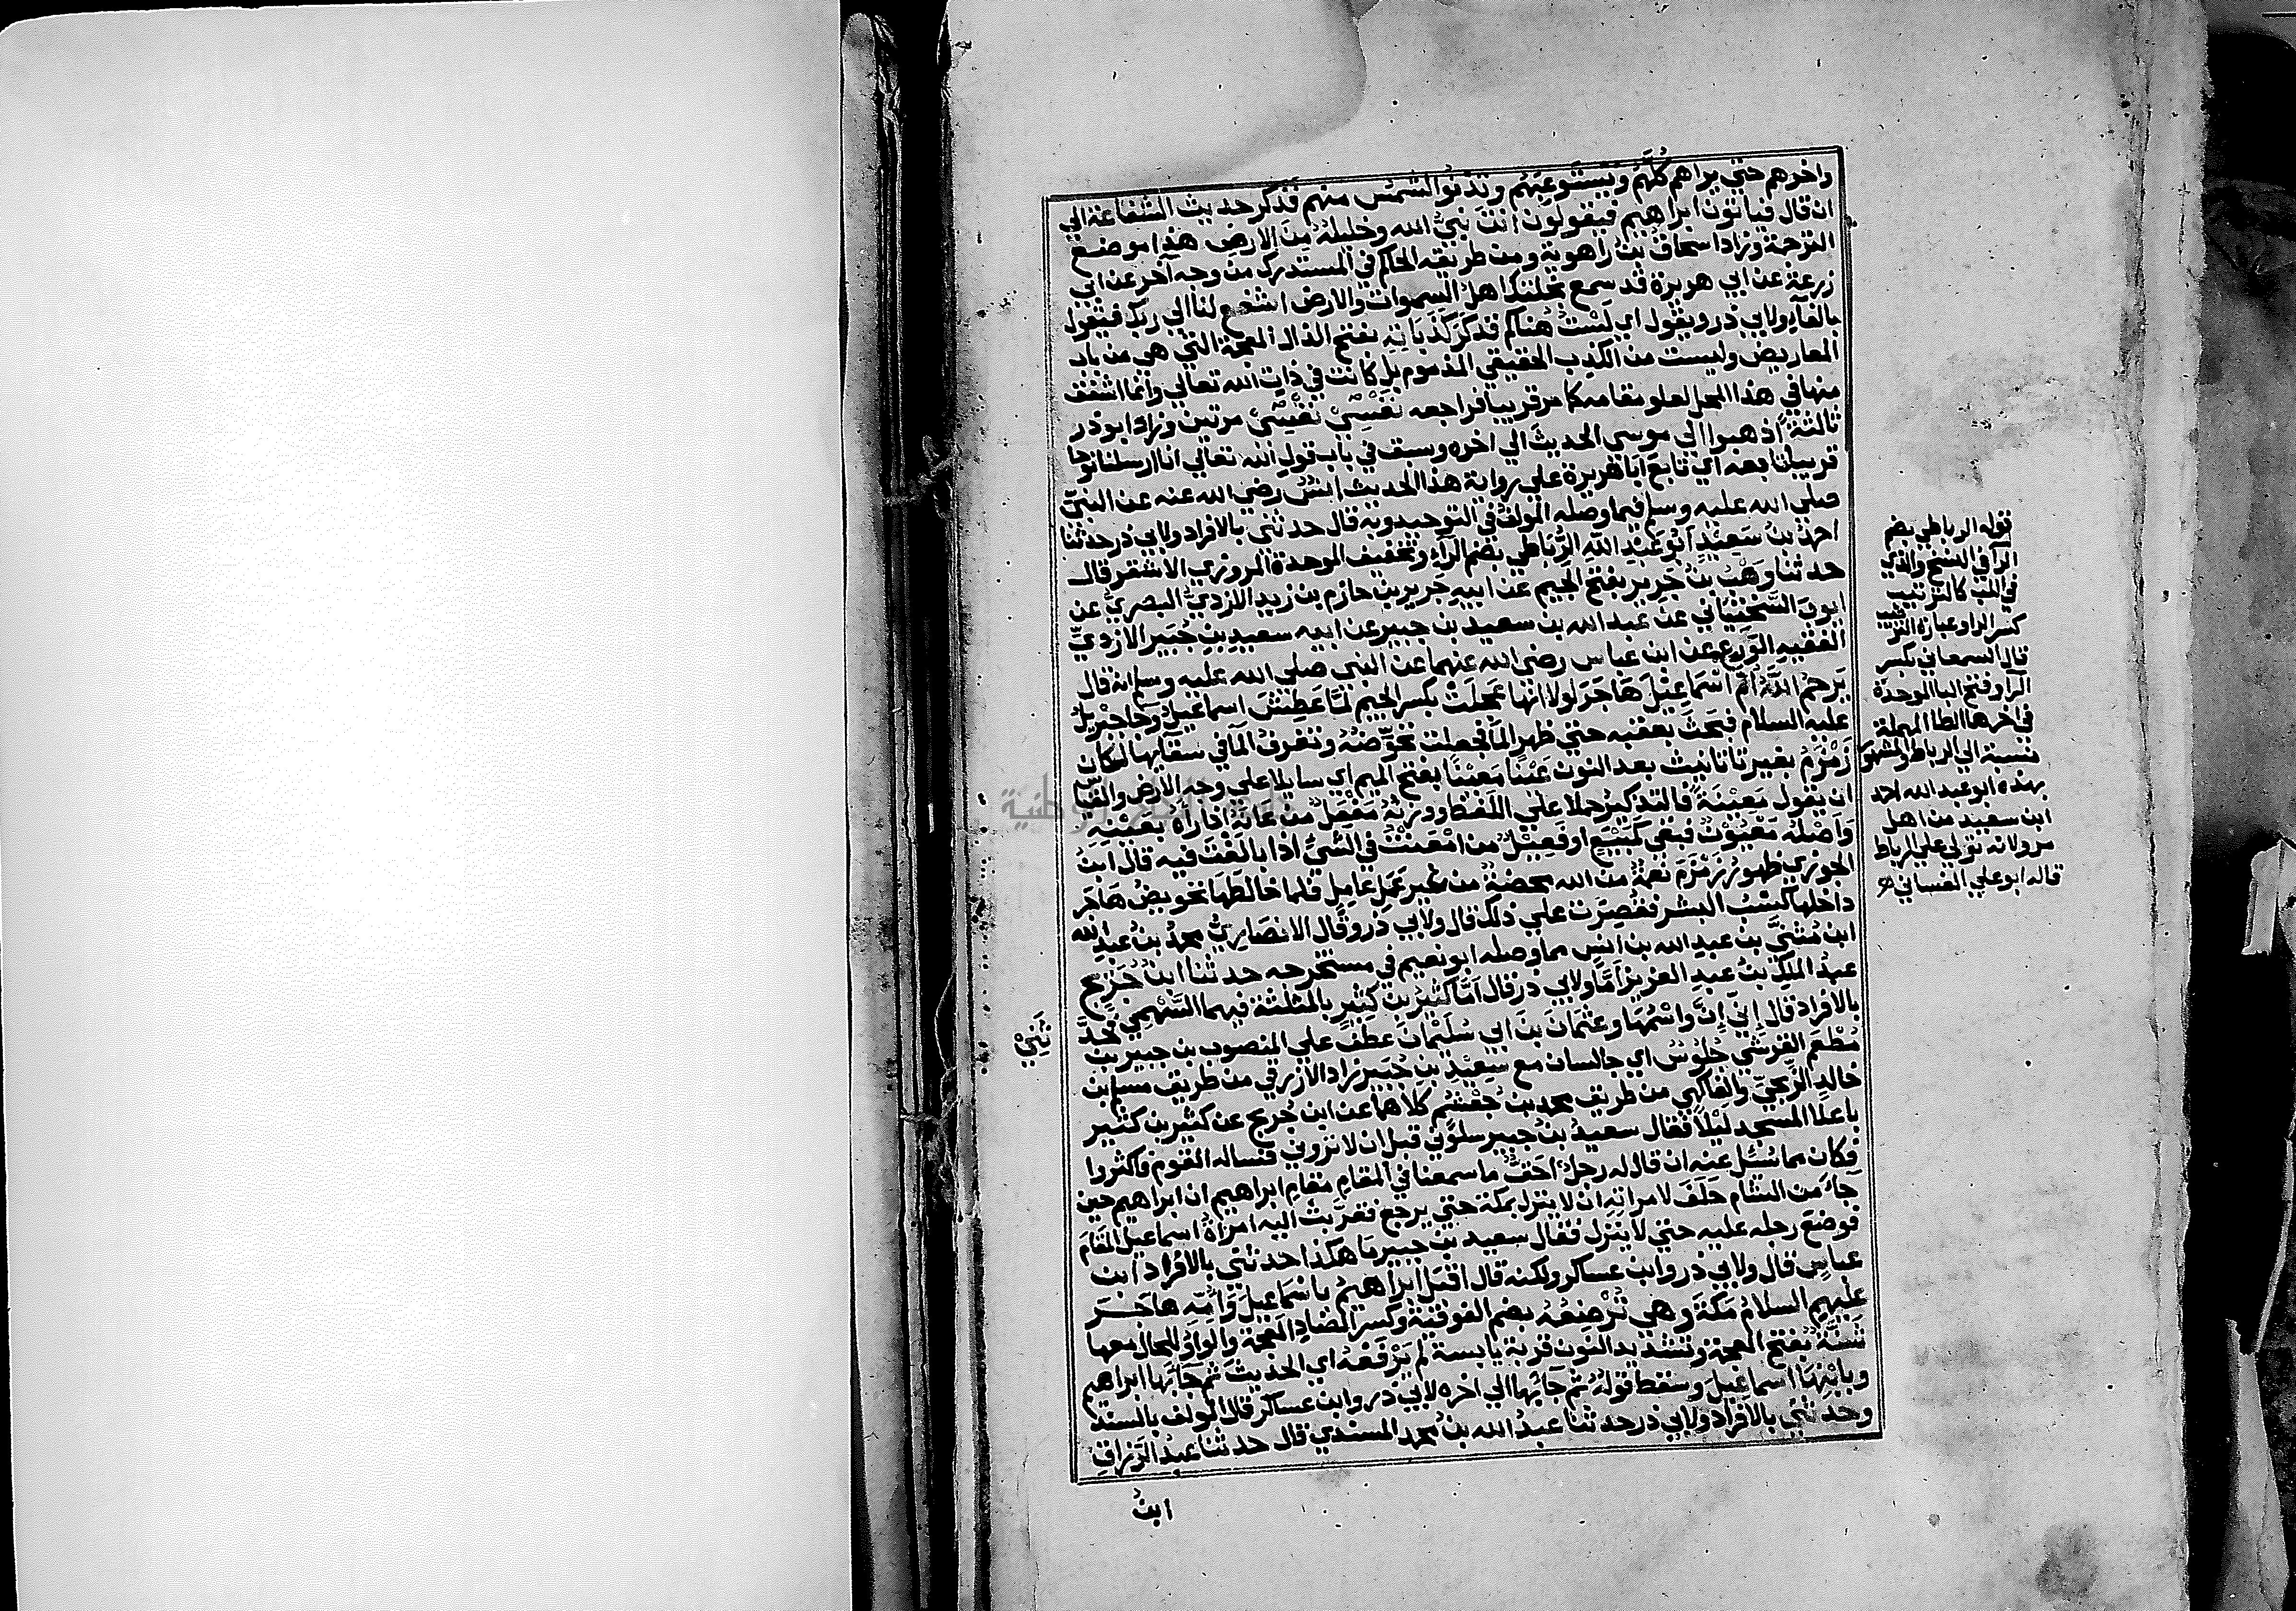 واخرهم حتي يراهم كلَّهم ويستوعبهم وتدنو الشمس منهم فذكر حديث الشفاعة الي
ان قال فياتون ابراهيم فيقولون انت نبيُّ الله وخليله من الارض هذا موضع
الترجمة وزاد اسحاق بن راهوية ومن طريقه الحاكم في المستدرك من وجه آخر عن ابي
زرعة عن ابي هريرة قد سمع بخلتك اهل السموات والارض اشفع لنا الي ربك فيقول
بالفاء ولابي ذر ويقول اي لَسْتُ هُناكم فذكر كَذَبَاتِهِ بفتح الذال المعجمة التي هي من باب
المعاريض وليست من الكذب الحقيقي المذموم بل كانت في ذات الله تعالي وانما اشفق
منها في هذا المحل لعلو مقامه كما مر قريبا فراجعه نَفْسِيْ نَفْسِيْ مرتين وزاد ابو ذر
ثالثة اذهبوا الي موسي الحديث الي اخره وسبق في باب قول الله تعالي انا ارسلنا نوحا
قريبا تابعه اي تابع ابا هريرة علي رواية هذا الحديث انسٌ رضي الله عنه عن النبيّ
صلي الله عليه وسلم فيما وصله المولف في التوحيد وبه قال حدثني بالافراد ولابي ذر حدثنا
احمدُ بنُ سَعِيْدٍ ابُو عَبْدِ اللهِ الرُّبَاطي بضم الراء وتخفيف الموحدة المروزي الاشقر قال
حدثنا وَهْبُ بنُ جرير بفتح الجيم عن ابيهِ جَرير بن حازم بن زيد الازديّ البصريّ عن
ايوبَ السَّخْتِيَاني عن عبد الله بن سعيد بن جبير عن ابيه سعيدِ بنِ جُبَيرٍ الازديّ
الفقيه الوَرِع عن ابن عباس رضي الله عنهما عن النبي صلي الله عليه وسلم انه قال
يَرحمُ اللهُ امَّ اسْمَاعِيْلَ هَاجَرَ لولا انها عَجِلَتْ بكسر الجيم لمَّا عَطِشَ اسماعيلُ وجا جبريلُ
عليه السلام فبحث بعقبه حتي ظهر الما فجعلت تحوّضهُ وتغرف الما في سقايها لكان
زَمْزَمُ بغير تا تانيث بعد النون عَيْنًا مَعِيْنًا بفتح الميم اي سايلا علي وجه الارض والقياسُ
ان يقول مَعِيْنَةً فالتذكيرُ حملا علي اللفظ ووزنُهُ مَفْعِلٌ من عَانَهُ اذا رآه بعينِهِ
وَاصْلُهُ مَعْيُوْنٌ فبقي كَمَبِيْعٍ او فَعِيْلٌ من امْعَنْتُ في الشيُ اذا بالَغْتَ فيه قال ابن
الجوزي ظهورُ زَمْزَم نعمةٌ من الله محضةٌ من غير عَمَلِ عاملٍ فلما خالطَها تحويضُ هَاجَر
داخلها كسْبُ البشر فقصرت علي ذلك قال ولابي ذر وقال الانصَاريُّ محمدُ بنُ عبدِ الله
ابن مُثنَّي بن عبدِ الله بن انس مما وصله ابو نعيم في مستخرجه حدثنا ابنُ جُرَيْج
عبدُ الملك بنُ عبد العزيز امَّا ولابي ذر قال امَّا كثيرُ بن كثير بالمثلثة فيهما السَّهْمِي فَحَدَّ
ثَنِيْ
بالافراد قال اِنّي اِنَّ واسْمُها وعثمانَ بنَ ابي سُلَيْمَانَ عطف علي المنصوب بن جبير بن
مُطْعِم القرشي جُلُوسٌ اي جالسان مع سعيدِ بنِ جُبَيرٍ زاد الازرقي من طريق مسلم بن
خالدِ الزنجيّ والفاكهي من طريق محمد بن جُعْشُم كلاهما عن ابن جُريج عن كثير بن كثير
باعلا المسجد لَيْلًا فقال سعيدُ بنُ جبير سلُوْني قبل ان لا تروني فساله القوم فاكثروا
فكان مما سُئِل عنه ان قال له رجلٌ احَقٌّ ما سمعنا في المقامِ مقامِ ابراهيم ان ابراهيم حين
جاء من الشام حَلَف لامراتِه ان لا ينزل بمكة حتي يرجع فقرَّبت اليه امراة اسماعيل المقام
فوضع رجله عليه حتي لا ينزل فقال سعيد بن جبير ما هكذا حدثني بالافراد ابن
عباس قال ولابي ذر وابن عساكر ولكنه قال اقبل ابْراهيمُ باسماعيلَ وامِّهِ هاجَرَ
عليهم السلام مكة وهي تُرْضِعُهُ بضم الفوقية وكسر الضاد المعجمة والواو للحال معها
شَنَّةٌ بفتح المعجمة وتشديد النون قربة يابسة لم يَرْفَعْهُ اي الحديث ثم جآبها ابراهيم
وبابنها اسماعيل وسقط قوله ثم جآبها الي اخره لابي ذر وابن عساكر قال المولف بالسند
وحدثني بالافراد ولابي ذر حدثنا عبدُ الله بنُ محمد المسندي قال حدثنا عبدُ الرزاق
ابنُ
قوله الرباطي بضم
الرا في النسخ والذي
في اللب كالترتيب
كسر الرا وعبارة الترتيب
قال السمعاني بكسر
الرا وفتح البا الموحدة
في اخرها الطا المهملة
نسبة الي الرباط والمشهور
بهذه ابو عبد الله احمد
ابن سعيد من اهل
مرو لانه تولي علي الرباط
قاله ابو علي الغساني